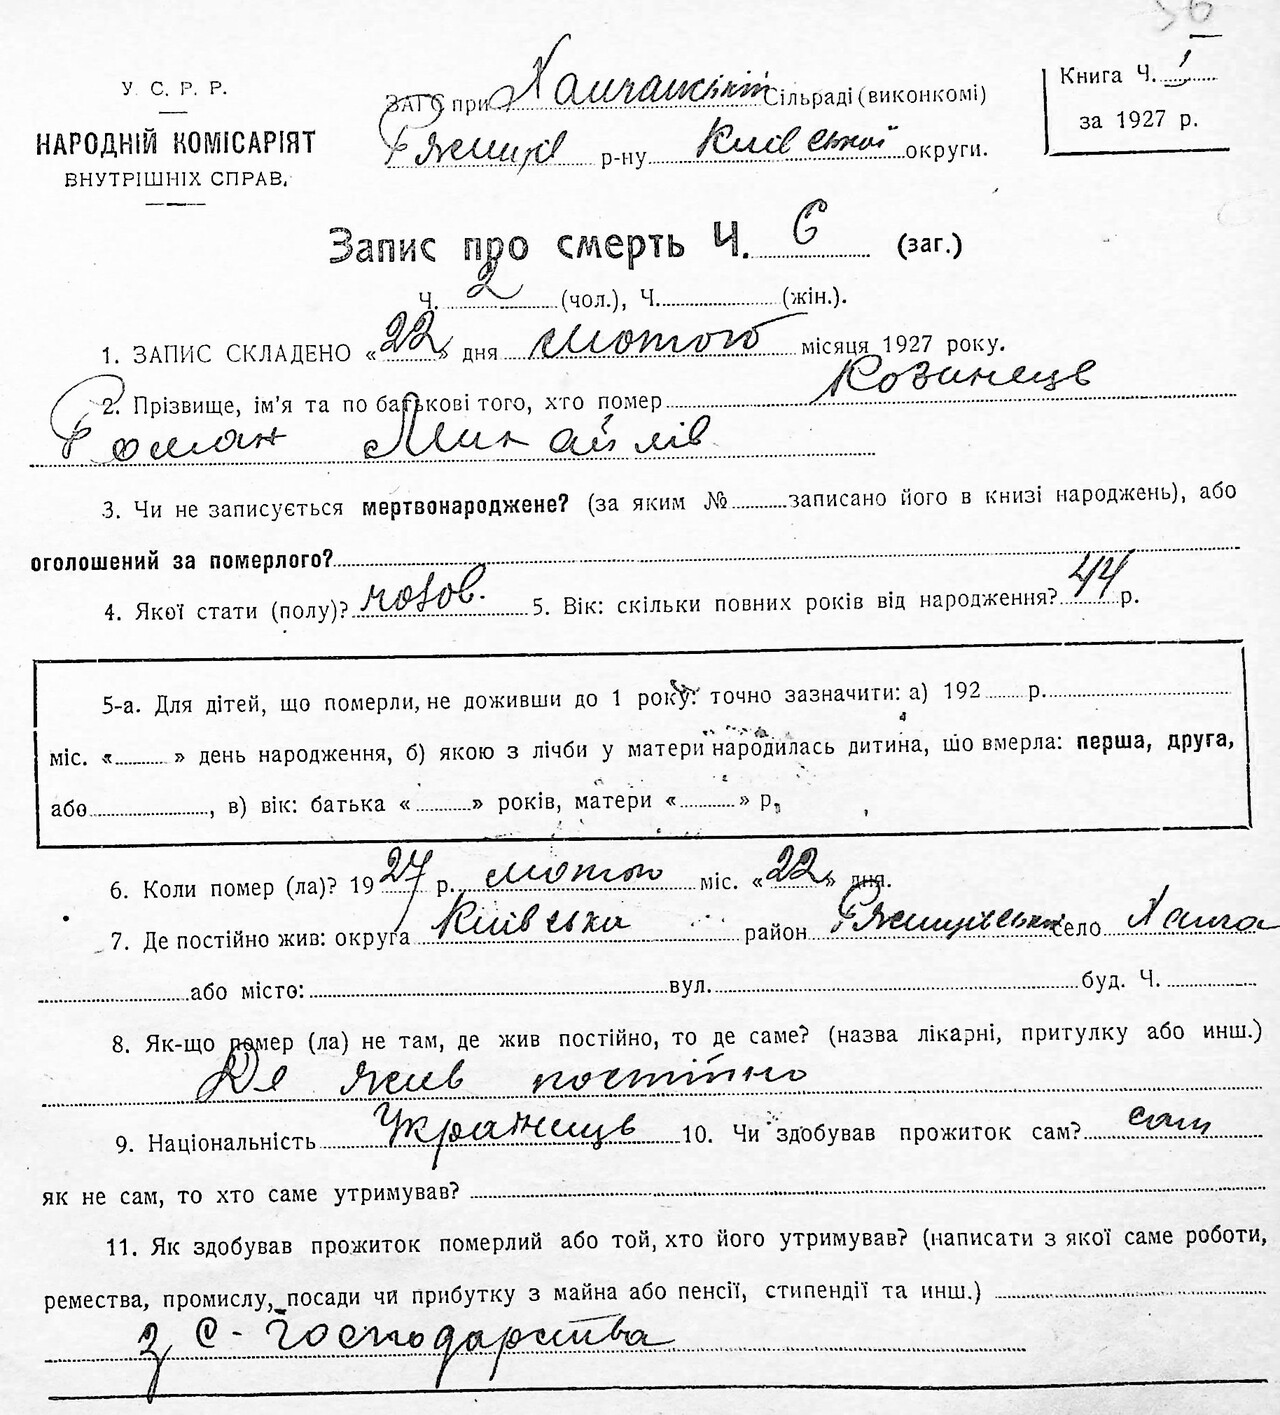 36
У. С. Р. Р.
НАРОДНІЙ КОМІСАРІЯТ
ВНУТРІШНІХ СПРАВ.
ЗАГС при Сільраді (виконкомі)
р-ну Київської округи.
Книга Ч. 1
за 1927 р.
Запис про смерть Ч. 6 (заг.)
Ч. 2 (чол.), Ч. (жін.).
1. ЗАПИС СКЛАДЕНО «22» дня лютого місяця 1927 року.
2. Прізвище, ім'я та по батькові того, хто помер Козинець
Роман Михайлів
3. Чи не записується мертвонароджене? (за яким № записано його в книзі народжень), або
оголошений за померлого?
4. Якої стати (полу)? чолов. 5. Вік: скільки повних років від народження? 44 р.
5-а. Для дітей, що померли, не доживши до 1 року: точно зазначити: а) 192 р.
міс. « » день народження, б) якою з лічби у матери народилась дитина, що вмерла: перша, друга,
або , в) вік: батька « » років, матери « » р,
6. Коли помер (ла)? 1927 р. лютого міс. «22» дня.
7. Де постійно жив: округа Київська район село
або місто: вул. буд. Ч.
8. Як-що помер (ла) не там, де жив постійно, то де саме? (назва лікарні, притулку або инш.)
Де жив постійно
9. Національність Українець 10. Чи здобував прожиток сам? сам
як не сам, то хто саме утримував?
11. Як здобував прожиток померлий або той, хто його утримував? (написати з якої саме роботи,
ремества, промислу, посади чи прибутку з майна або пенсії, стипендії та инш.)
з С-Господарства